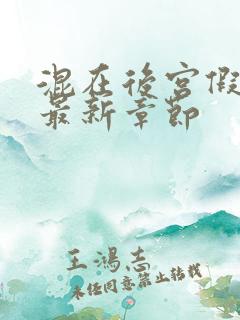 混在後宮假
最新章節
王鴻志
未任同意禁止轉載